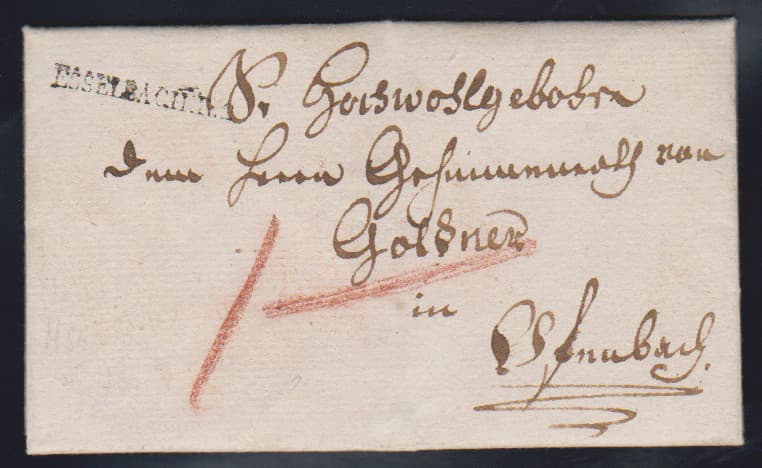 ESSELBACH.N.
S. Hochwohlgebohren
dem Herrn Geheimenrath von
Goldner
in
Offenbach.